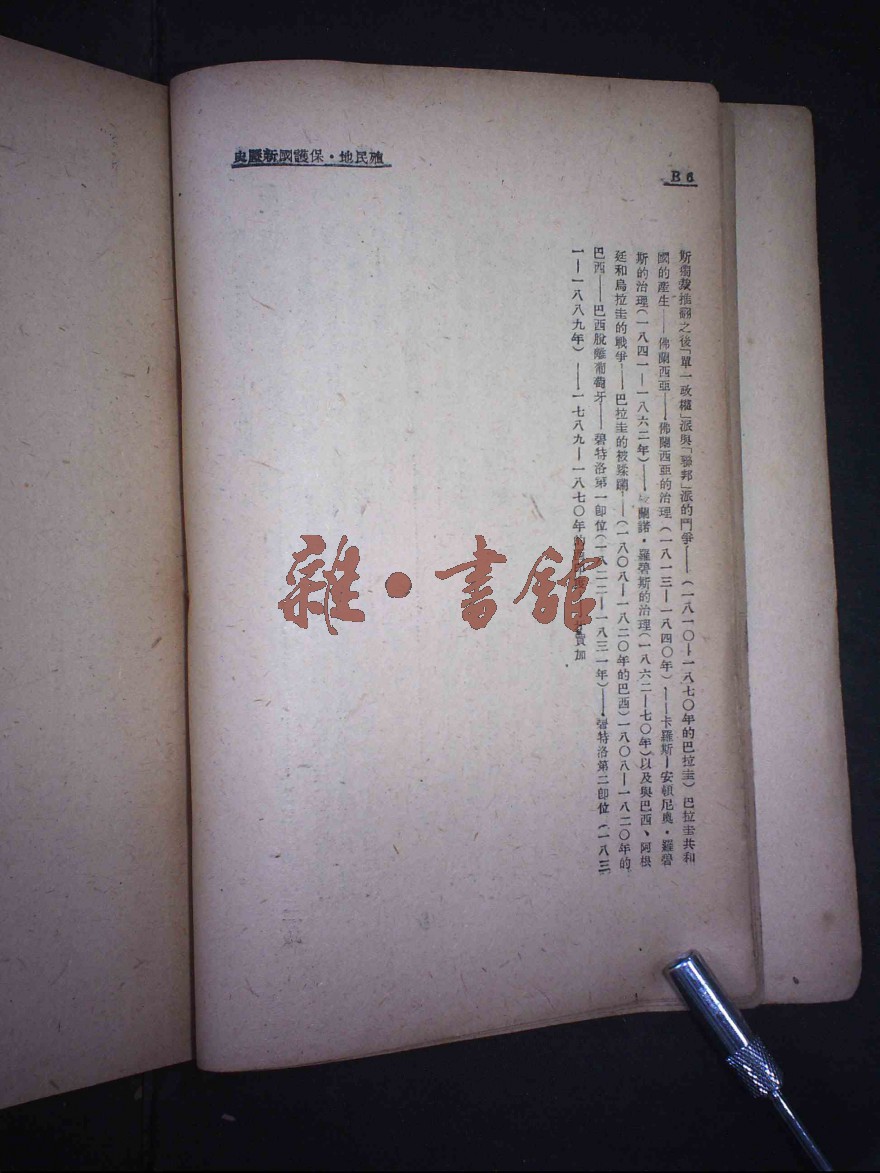 殖民地·保護國新歷史
B 6
斯獨裁推翻之後「單一政權」派與「聯邦」派的鬥爭——(一八一〇—一八七〇年的巴拉圭)巴拉圭共和
國的產生——佛蘭西亞——佛蘭西亞的治理(一八一三—一八四〇年)——卡羅斯—安頓尼奧·羅碧
斯的治理(一八四一—一八六二年)——蘭諾·羅碧斯的治理(一八六二—七〇年)以及與巴西、阿根
廷和烏拉圭的戰爭——巴拉圭的被蹂躪——(一八〇八—一八二〇年的巴西)一八〇八—一八二〇年的
巴西——巴西脫離葡萄牙——碧特洛第一卽位(一八二二—一八三一年)——碧特洛第二卽位(一八三
一—一八八九年)——一七八九—一八七〇年的 賣加
雜·書館